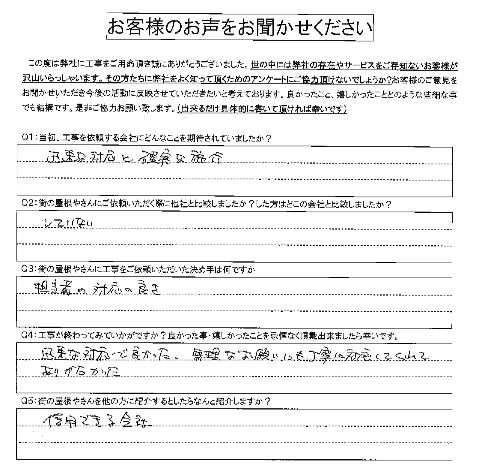 お客様のお声をお聞かせください
この度は弊社に工事をご用命頂き誠にありがとうございました。世の中には弊社の存在やサービスをご存知ないお客様が
沢山いらっしゃいます。その方たちに弊社をよく知って頂くためのアンケートにご協力頂けないでしょうか?お客様のご意見を
お聞かせいただき今後の活動に反映させていただきたいと考えております。良かったこと、嬉しかったことどのような些細な事
でも結構です。是非ご協力お願い致します。(出来るだけ具体的に書いて頂ければ幸いです)
Q1:当初、工事を依頼する会社にどんなことを期待されていましたか?
迅速な対応と確実な施行
Q2:街の屋根やさんにご依頼いただく際に他社と比較しましたか?した方はどこの会社と比較しましたか?
していない
Q3:街の屋根やさんに工事をご依頼いただいた決め手は何ですか
担当者の対応の良さ
Q4:工事が終わってみていかがですか?良かった事・嬉しかったことを忌憚なく頂戴出来ましたら幸いです。
迅速な対応で良かった。無理なお願いにも丁寧に対応してくれて
ありがたかった
Q5:街の屋根やさんを他の方に紹介するとしたらなんと紹介しますか?
信用できる会社